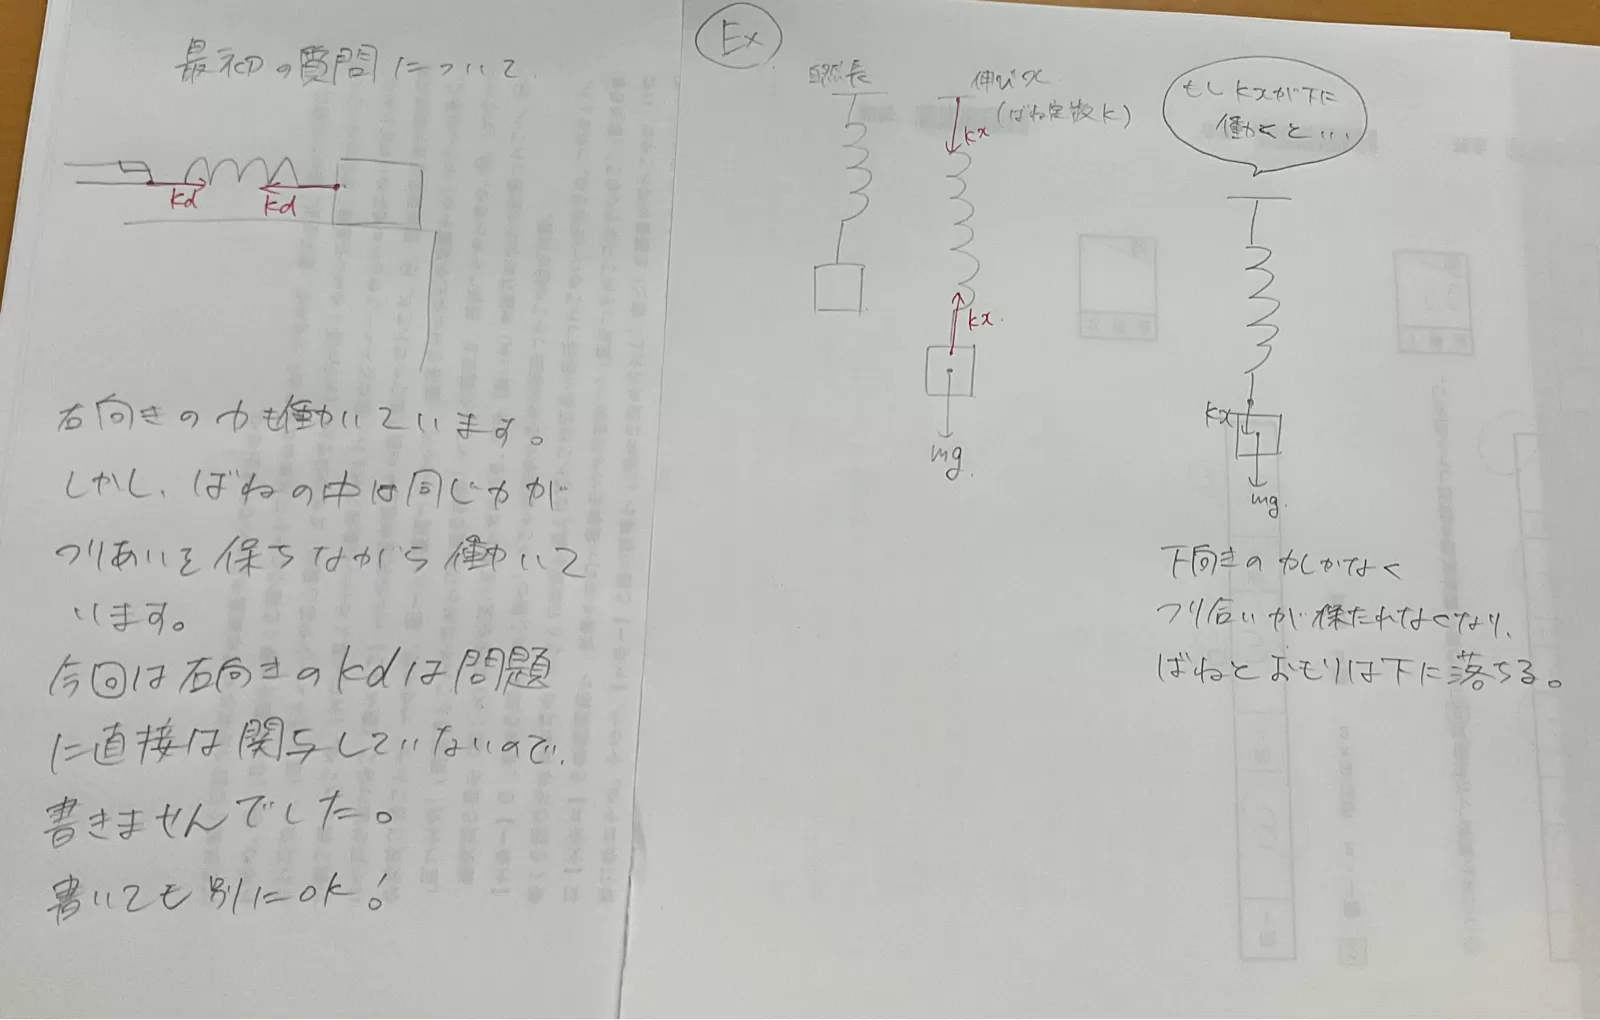 最初の質問について
kd
kd
右向きの力も働いています。
しかし、ばねの中は同じ力が
つりあいを保ちながら働いて
います。
今回は右向きのkdは問題
に直接は関与していないので、
書きませんでした。
書いても別にOK!
Ex
自然長
伸びx
(ばね定数k)
kx
kx
mg
もしkxが下に
働くと...
kx
mg
下向きの力しかなく
つり合いが保たれなくなり、
ばねとおもりは下に落ちる。